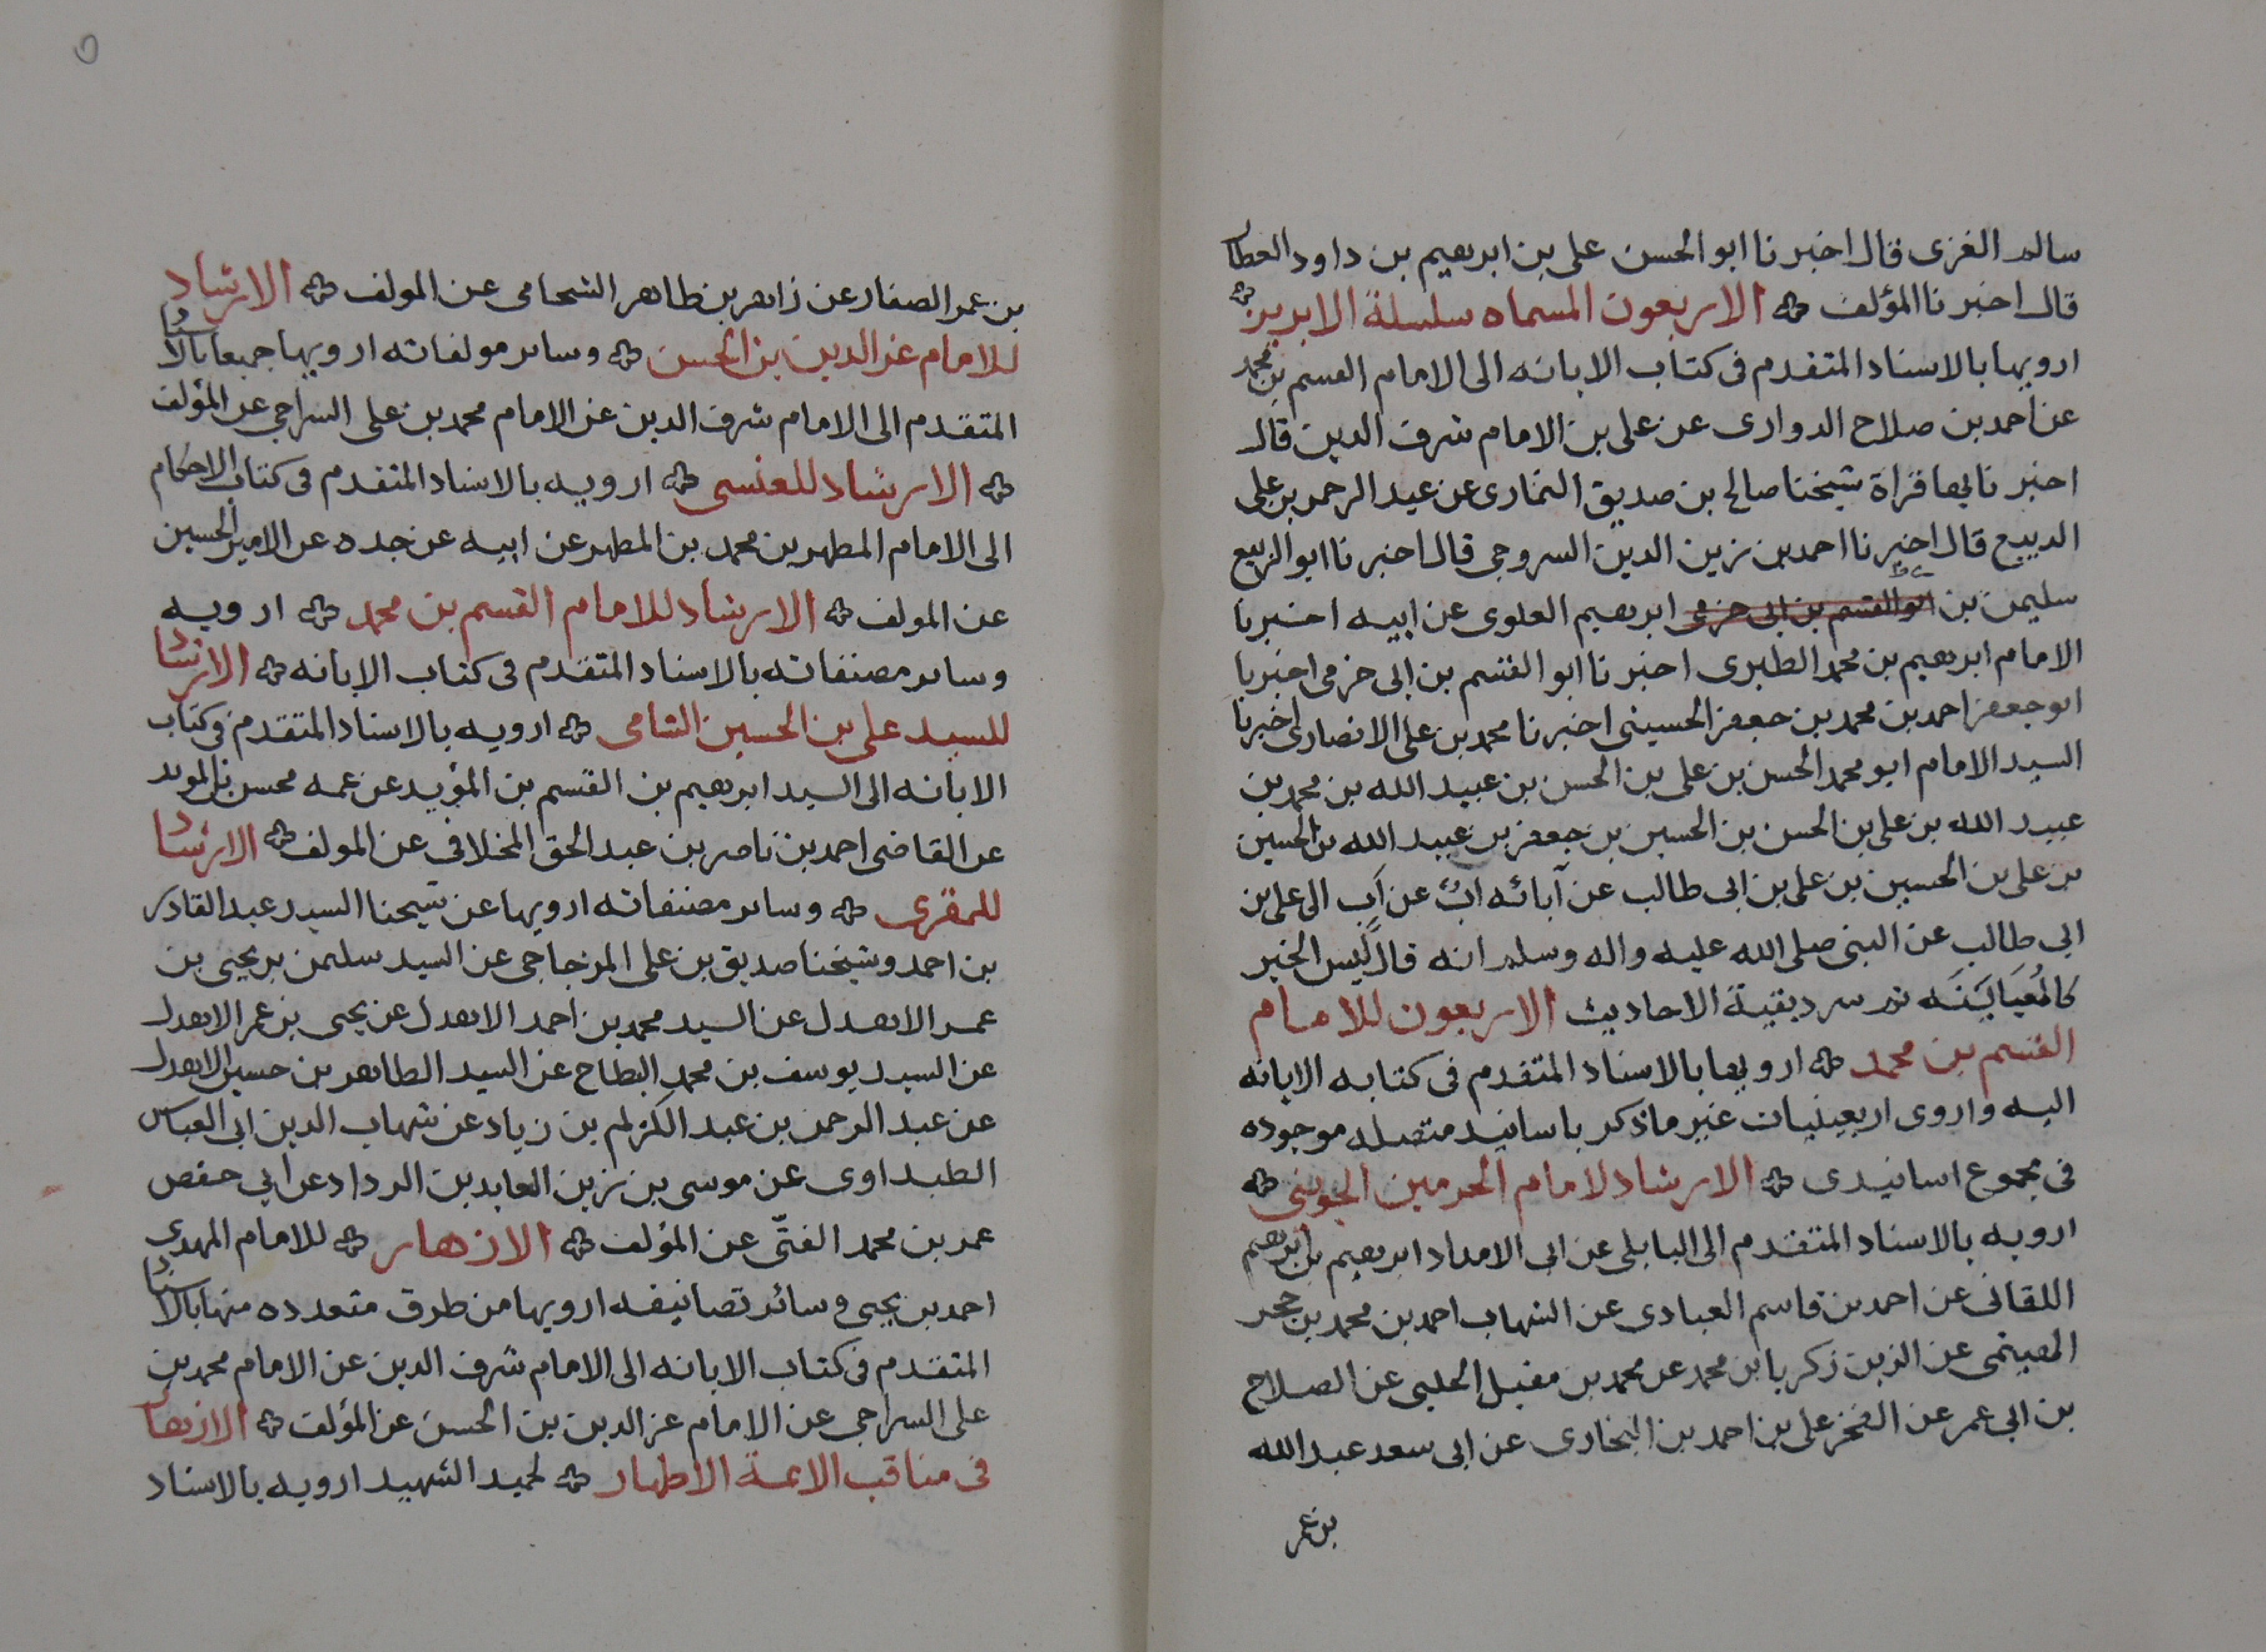 سالم الغزى قال اخبرنا ابو الحسن على بن ابرهيم بن داود العطار
قال اخبرنا المؤلف الاربعون المسماه سلسلة الابريز
ارويها بالاسناد المتقدم فى كتاب الابانه الى الامام القسم بن محمد
عن احمد بن صلاح الدوارى عن على بن الامام شرف الدين قال
اخبرنا بها قراة شيخنا صالح بن صديق النمارى عن عبد الرحمن بن على
الديبع قال اخبرنا احمد بن زين الدين السروجى قال اخبرنا ابو الربيع
سليمن بن ابو القسم بن ابى حزمى ابرهيم العلوى عن ابيه اخبرنا
الامام ابرهيم بن محمد الطبرى اخبرنا ابو القسم بن ابى حزمى اخبرنا
ابو جعفر احمد بن محمد بن جعفر الحسينى اخبرنا محمد بن على الانصارى اخبرنا
السيد الامام ابو محمد الحسن بن على بن الحسن بن عبيد الله بن محمد بن
عبيد الله بن على بن الحسن بن الحسين بن جعفر بن عبيد الله بن الحسين
بن على بن الحسين بن على بن ابى طالب عن آبائه اب عن اب الى على بن
ابى طالب عن النبى صلى الله عليه واله وسلم انه قال ليس الخبر
كالمُعَايَنَه ثم سرد بقية الاحاديث الاربعون للامام
القسم بن محمد ارويها بالاسناد المتقدم فى كتابه الابانه
اليه واروى اربعينيات غير ما ذكر باسانيد متصله موجوده
فى مجموع اسانيدى الارشاد لامام الحرمين الجوينى
ارويه بالاسناد المتقدم الى البابلى عن ابى الامداد ابرهيم بن ابرهيم
اللقانى عن احمد بن قاسم العبادى عن الشهاب احمد بن محمد بن حجر
الهيتمى عن الزين زكريا بن محمد عن محمد بن مقبل الحلبى عن الصلاح
بن ابى عمر عن الفخر على بن احمد بن البخارى عن ابى سعد عبد الله
بن عمر
بن عمر الصفار عن زاهر بن طاهر الشحامى عن المولف الارشاد
للامام عز الدين بن الحسن وساىر مولفاته ارويها جميعا بالاسناد
المتقدم الى الامام شرف الدين عن الامام محمد بن على السراجى عن المؤلف
الارشاد للعنسى ارويه بالاسناد المتقدم فى كتاب الاحكام
الى الامام المطهر بن محمد بن المطهر عن ابيه عن جده عن الامير الحسين
عن المولف الارشاد للامام القسم بن محمد ارويه
وساىر مصنفاته بالاسناد المتقدم فى كتاب الابانه الارشاد
للسيد على بن الحسين الشامى ارويه بالاسناد المتقدم فى كتاب
الابانه الى السيد ابرهيم بن القسم بن المؤيد عن عمه محسن بن المويد
عن القاضى احمد بن ناصر بن عبد الحق المخلافى عن المولف الارشاد
للمقرى وساىر مصنفاته ارويها عن شيخنا السيد عبد القادر
بن احمد وشيخنا صديق بن على المزجاجى عن السيد سليمن بن يحيى بن
عمر الاهدل عن السيد محمد بن احمد الاهدل عن يحيى بن عمر الاهدل
عن السيد يوسف بن محمد البطاح عن السيد الطاهر بن حسين الاهدل
عن عبد الرحمن بن عبد الكريم بن زياد عن شهاب الدين ابى العباس
الطبداوى عن موسى بن زين العابدين الرداد عن ابي حفص
عمر بن محمد الفتّى عن المؤلف الازهار للامام المهدى
احمد بن يحيى وسائر تصانيفه ارويها من طرق متعدده منها بالاسناد
المتقدم فى كتاب الابانه الى الامام شرف الدين عن الامام محمد بن
على السراجى عن الامام عز الدين بن الحسن عن المؤلف الازهار
فى مناقب الائمة الاطهار لحميد الشهيد ارويه بالاسناد